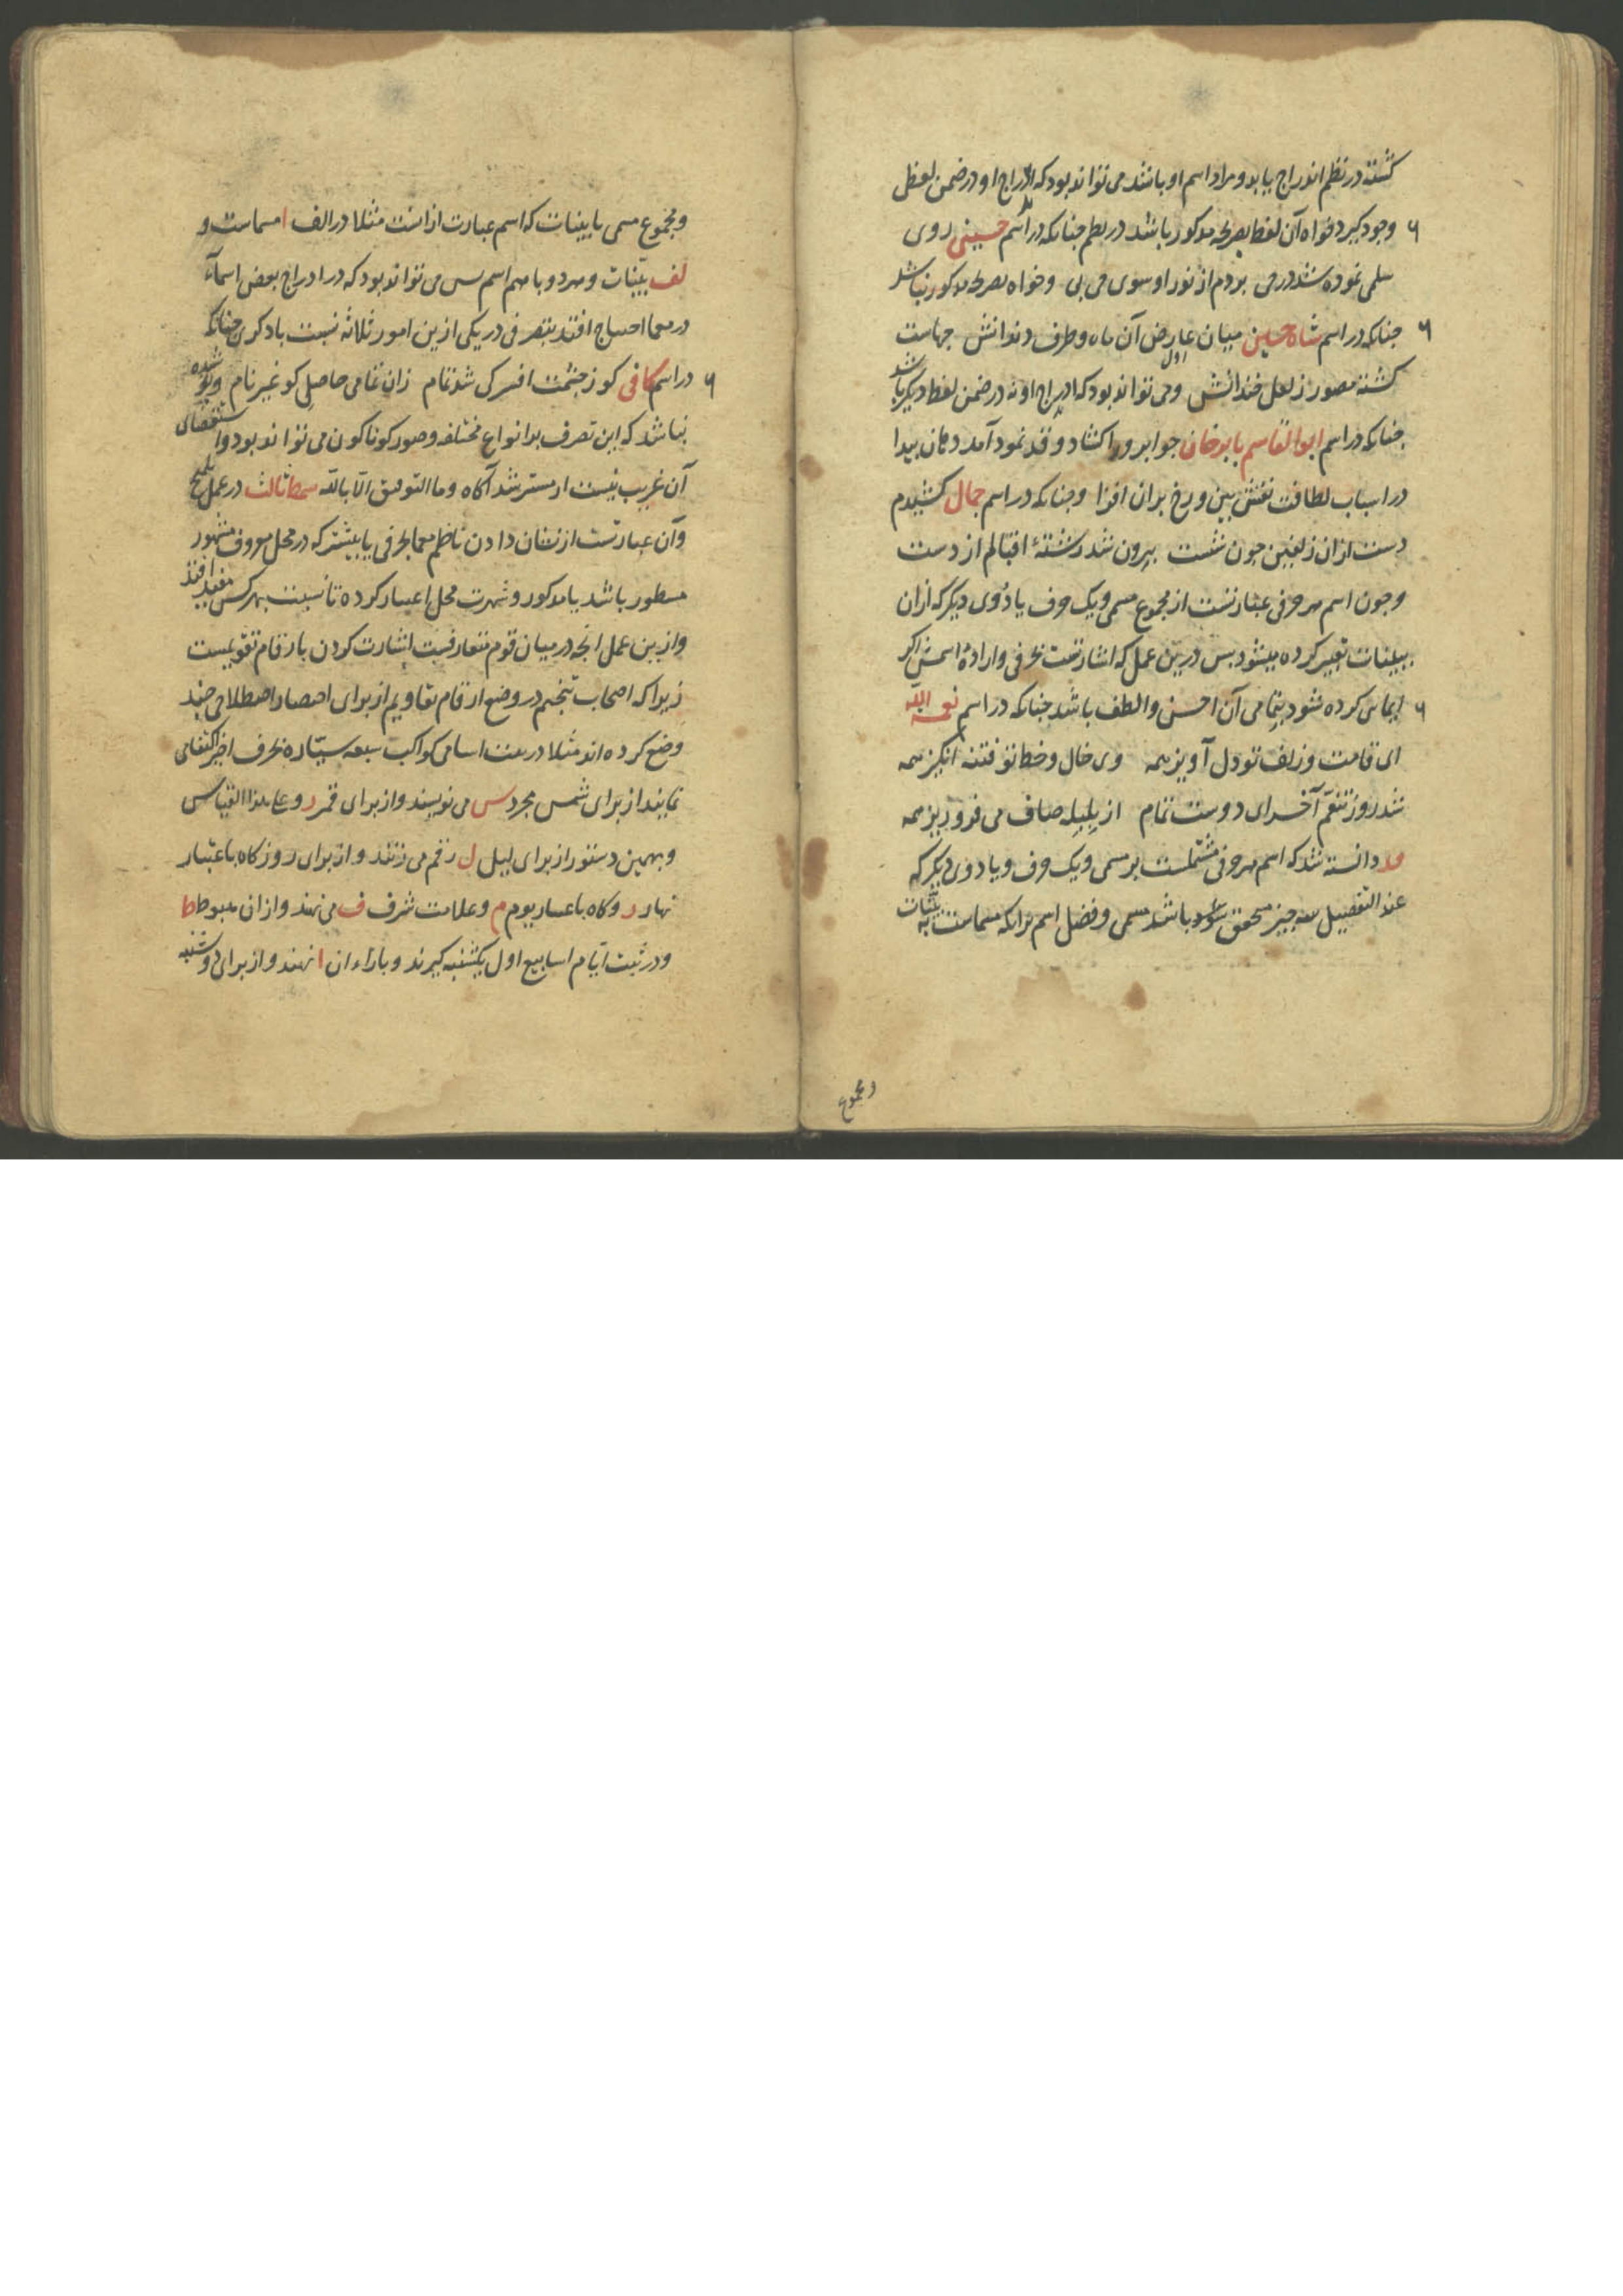 گشته در نظم اندراج یابد و مراد اسم او باشد می تواند بود که اندراج او در ضمن لفظ
وجود گیرد خواه آن لفظ بصریحه مذکور باشد در نظم چنانکه در اسم حسینی روی
سلمی نموده شد در می بردم از نور او سوی می پی وخواه بصریحه مذکور نباشد
چنانکه در اسم شاه حسین میان عارض آن ماه وطرف دندانش جهاست
گشته مصور ز لعل خندانش ومی تواند بود که ادراج او نه در ضمن لفظ دیگر باشد
چنانکه در اسم ابوالقاسم بابرخان چو ابرو را گشاد و قد نمود آمد دهان پیدا
در اسباب لطافت نقش بین و رخ بران افزا وچنانکه در اسم جمال کشیدم
دست ازان زلفین چون شست بیرون شد رشتهٔ اقبالم از دست
وچون اسم هر حرفی عبارتست از مجموع مسمی ویک حرف یا دوی دیگر که ازان
ببینات تعبیر کرده میشود پس درین عمل که اشارتست بحرفی وارادهٔ اسمش اگر
ایمایی کرده شود بتمامی آن احسن والطف باشد چنانکه در اسم نعمة الله
ای قامت وزلف تو دل آویز همه وی خال وخط تو فتنه انگیز همه
شد روز تنعّم آخر ای دوست تمام از بلبله صاف می فرو ریز همه
دانسته شد که اسم هر حرفی مشتملست بر مسمی ویک حرف ویا دوی دیگر که
عند التفصیل سه چیز محقق باشد مسمی وفضل اسم برانکه مسماست به بیّنات
ومجموع
ومجموع مسمی با بینات که اسم عبارت ازانست مثلا در الف ا مسماست و
لف بیّنات وهر دو با هم اسم پس می تواند بود که در ادراج بعض اسمآء
در معما احتیاج افتد بتصرفی در یکی ازین امور ثلاثه نسبت با دیگری چنانکه
در اسم کافی کو ز چشمت افسر کی شد تمام زان تمامی حاصل کو غیر نام وپوشیده
نباشد که این تصرف بر انواع مختلفه وصور کوناکون می تواند بود واستقصای
آن غریب نیست از مسترشد آگاه وما التوفیق الّا بالله سمط ثالث در عمل تلمیح
وآن عبارتست از نشان دادن ناظم معما بحرفی یا بیشتر که در محل معروف مشهور
مسطور باشد یا مذکور وشهرت محل اعتبار کرده تا نسبت بهر کس مفید افتد
وازین عمل آنچه در میان قوم متعارفست اشارت کردن بارقام تقویمیست
زیرا که اصحاب تنجیم در وضع ارقام تقاویم از برای اختصار اصطلاحی چند
وضع کرده اند مثلا در ثبت اسامی کواکب سبعه سیّاره بحرف اخیر اکتفا می
نمایند از برای شمس مجرد س می نویسند واز برای قمر ر وعلی هذا القیاس
وبهمین دستور از برای لیل ل رقم می زنند واز برای روز گاه باعتبار
نهار ر وگاه باعتبار یوم م وعلامت شرف ف می نهند وازان هبوط ط
ودر ثبت ایّام اسابیع اول یکشنبه گیرند وبازاء ان ا نهند واز برای دوشنبه